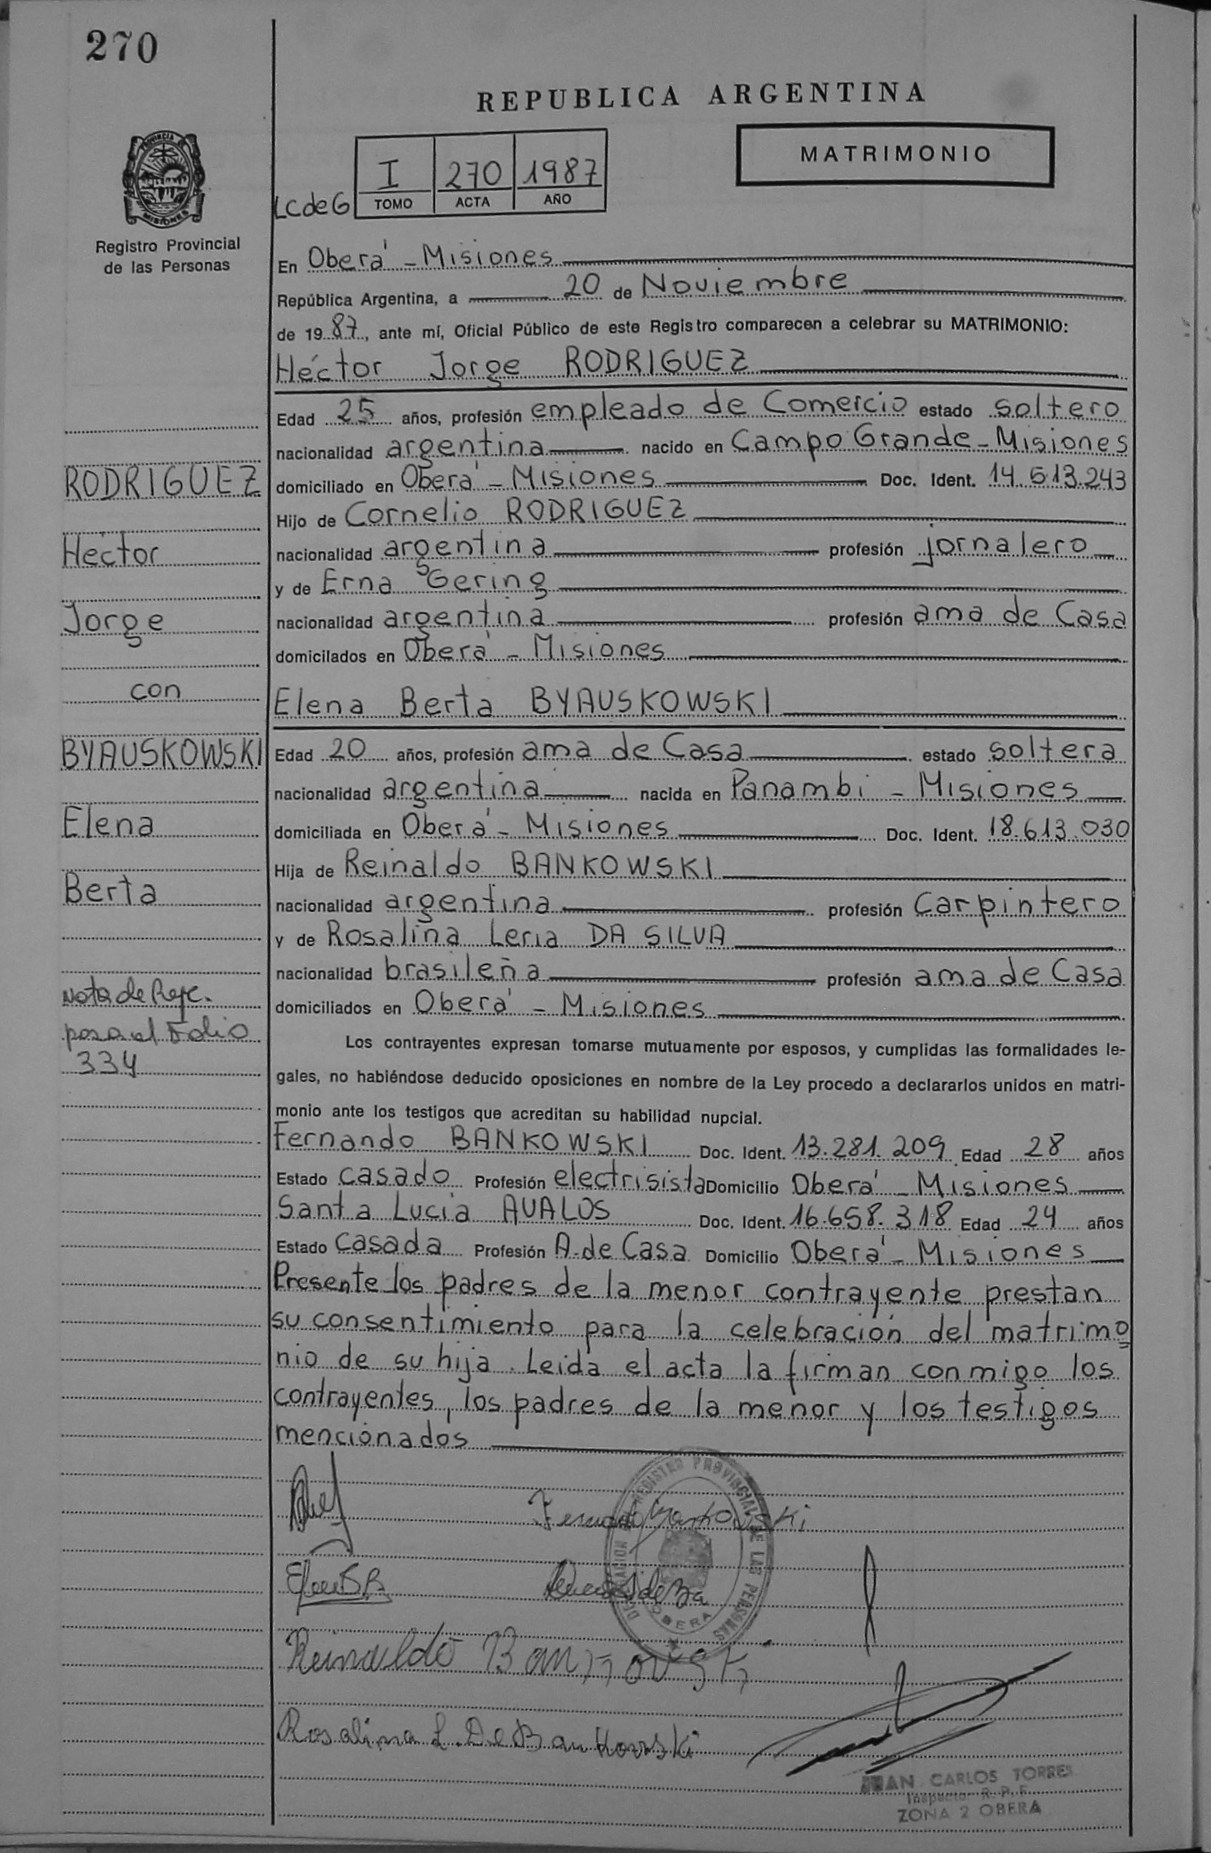 270
REPUBLICA ARGENTINA
MATRIMONIO
I 270 1987
LCdeG TOMO ACTA AÑO
PROVINCIA DE MISIONES
Registro Provincial
de las Personas
En Oberá - Misiones
República Argentina, a 20 de Noviembre
de 1987, ante mí, Oficial Público de este Registro comparecen a celebrar su MATRIMONIO:
Héctor Jorge RODRIGUEZ
Edad 25 años, profesión empleado de Comercio estado soltero
nacionalidad argentina nacido en Campo Grande - Misiones
RODRIGUEZ domiciliado en Oberá - Misiones Doc. Ident. 14.513.243
Hijo de Cornelio RODRIGUEZ
Héctor nacionalidad argentina profesión jornalero
y de Erna Gering
Jorge nacionalidad argentina profesión ama de Casa
domicilados en Oberá - Misiones
con Elena Berta BYAUSKOWSKI
BYAUSKOWSKI Edad 20 años, profesión ama de Casa estado soltera
nacionalidad argentina nacida en Panambi - Misiones
Elena domiciliada en Oberá - Misiones Doc. Ident. 18.613.030
Hija de Reinaldo BANKOWSKI
Berta nacionalidad argentina profesión Carpintero
y de Rosalina Leria DA SILVA
nacionalidad brasileña profesión ama de Casa
Nota de Refe. domiciliados en Oberá - Misiones
pasa al Folio
334
Los contrayentes expresan tomarse mutuamente por esposos, y cumplidas las formalidades le-
gales, no habiéndose deducido oposiciones en nombre de la Ley procedo a declararlos unidos en matri-
monio ante los testigos que acreditan su habilidad nupcial.
Fernando BANKOWSKI Doc. Ident. 13.281.209 Edad 28 años
Estado casado Profesión electrisista Domicilio Oberá - Misiones
Santa Lucia AVALOS Doc. Ident. 16.658.318 Edad 24 años
Estado casada Profesión A. de Casa Domicilio Oberá - Misiones
Presente los padres de la menor contrayente prestan
su consentimiento para la celebración del matrimo
nio de su hija. Leida el acta la firman conmigo los
contrayentes, los padres de la menor y los testigos
mencionados
Fernando Bankowski
REGISTRO PROVINCIAL DE LAS PERSONAS
OBERA
Reinaldo Bankowski
Rosalina L. De Bankowski
JUAN CARLOS TORRES
Inspector R. P. P.
ZONA 2 OBERÁ